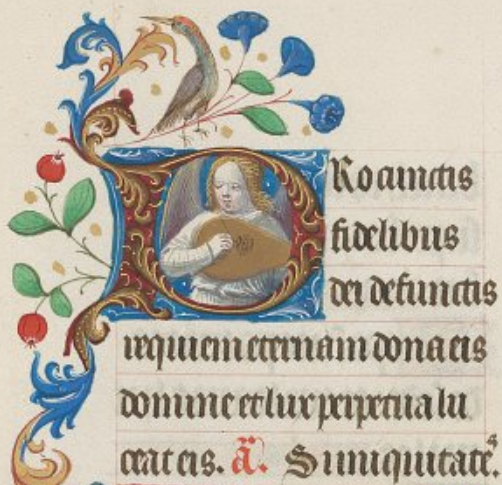 PRo cunctis
fidelibus
dei defunctis
requiem eternam dona eis
domine et lux perpetua lu
ceat eis. a̅. Si iniquitate⁹.